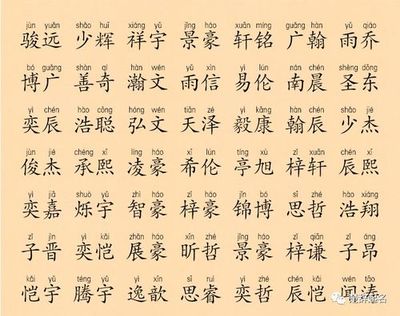 jùn yuǎn shǎo huī xiáng yǔ jǐng háo xuān míng guǎng hàn yǔ qiáo
骏远 少辉 祥宇 景豪 轩铭 广翰 雨乔
bó guǎng shàn qí hàn wén yǔ xìn yì lún nán chén shèng dōng
博广 善奇 瀚文 雨信 易伦 南晨 圣东
yì chén hào cōng hóng wén tiān zé yì kāng hàn chén shǎo jié
奕辰 浩聪 弘文 天泽 毅康 翰辰 少杰
jùn jié chéng xī líng háo xī lún tíng xù zǐ xuān chén xī
俊杰 承熙 凌豪 希伦 亭旭 梓轩 辰熙
yì jiā shuò yǔ zhì háo zǐ háo jǐn bó sī zhé hào xiáng
奕嘉 烁宇 智豪 梓豪 锦博 思哲 浩翔
zǐ jìn yì kǎi zhǎn háo xīn zhé jǐng háo zǐ qiān zǐ áng
子晋 奕恺 展豪 昕哲 景豪 梓谦 子昂
kǎi yǔ téng yǔ yì xīn sī ruì yì zhé chén kǎi
恺宇 腾宇 逸歆 思睿 奕哲 辰恺 闻涛